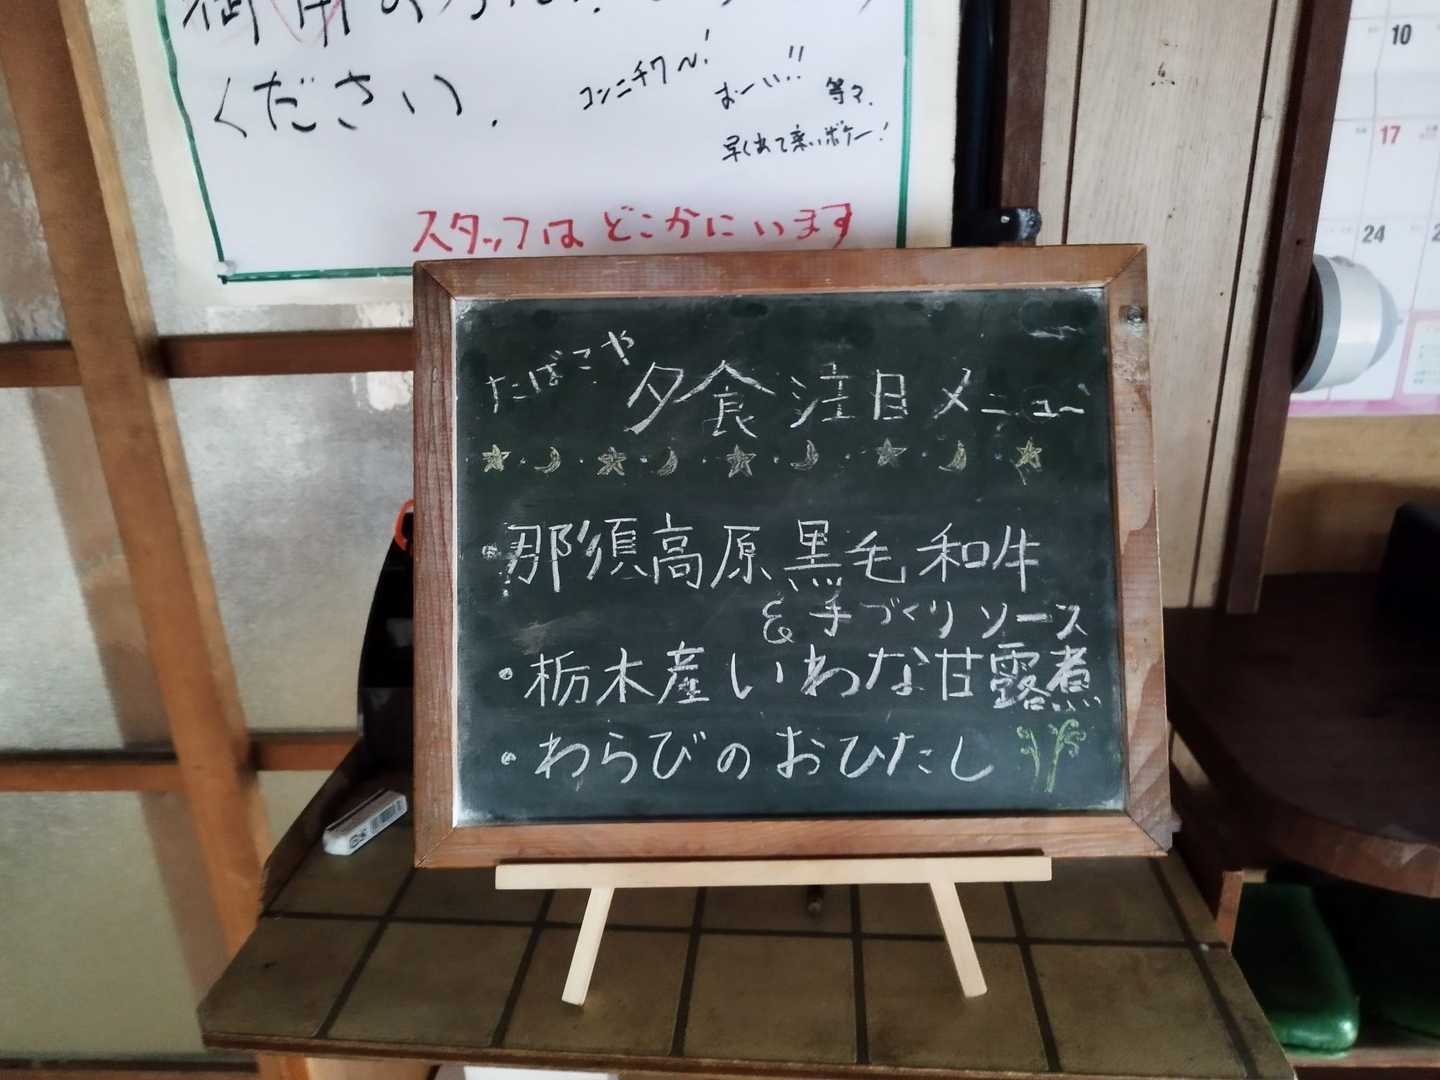 ください.
コンニチワ～!
おーい!!
等々.
早く出て来いボケー!
スタッフは どこかにいます
たばこや
夕食注目メニュー
・那須高原黒毛和牛
& 手づくりソース
・栃木産いわな甘露煮
・わらびのおひたし
10
17
24